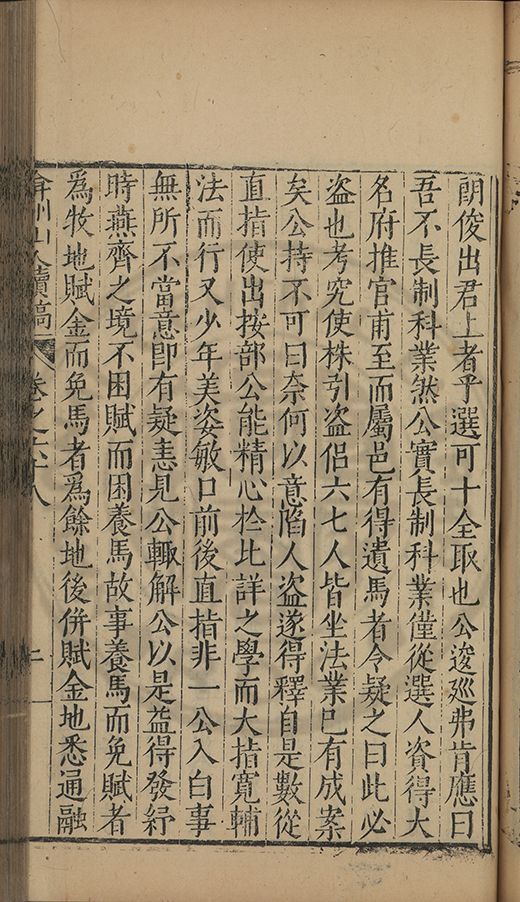 朗俊出君上者乎選可十全取也公逡廵弗肯應曰
吾不長制科業然公實長制科業僅從選人資得大
名府推官甫至而屬邑有得遺馬者令疑之曰此必
盗也考究使株引盗侣六七人皆坐法業已有成案
矣公持不可曰奈何以意陷人盗遂得釋自是數從
直指使出按部公能精心於比詳之學而大指寛輔
法而行又少年美姿敏口前後直指非一公入白事
無所不當意即有疑恚見公輙解公以是益得發紓
時燕齊之境不困賦而困養馬故事養馬而免賦者
爲牧地賦金而免馬者爲餘地後併賦金地悉通融
弇州山人續稿
卷之六十八
二